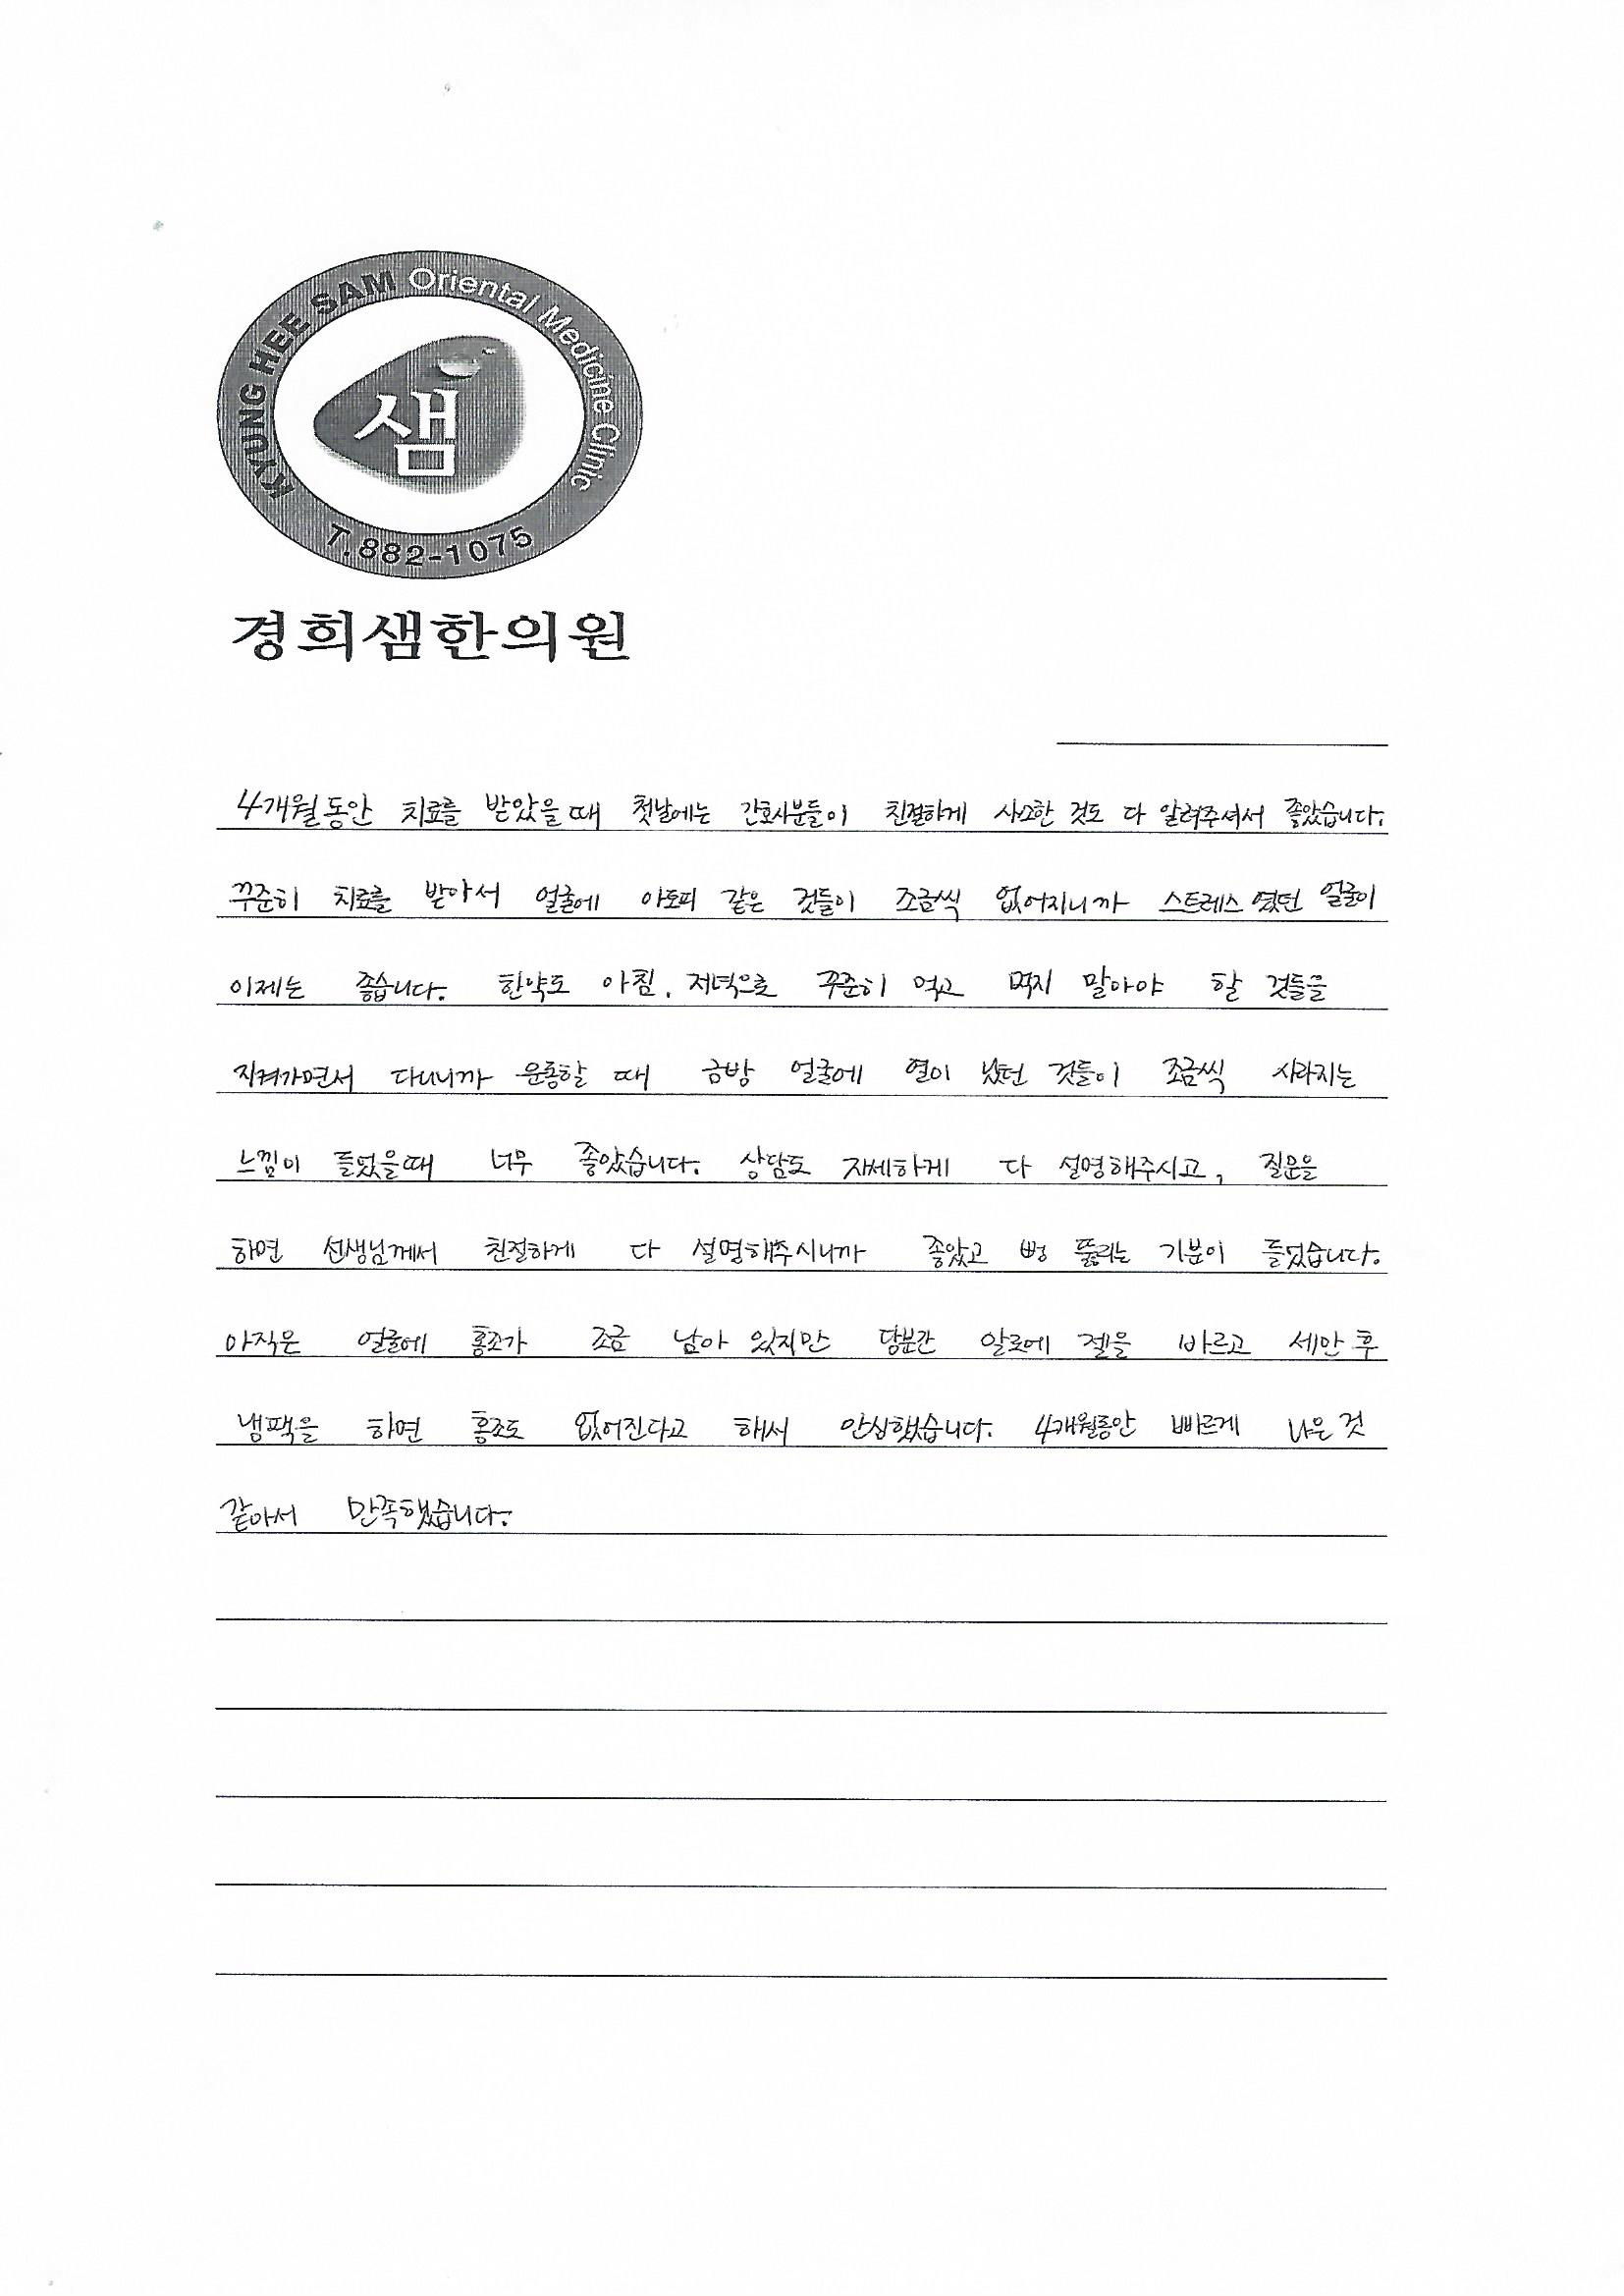 KYUNG HEE SAM Oriental Medicine Clinic
샘
T.882-1075
경희샘한의원
4개월동안 치료를 받았을때 첫날에는 간호사분들이 친절하게 사소한 것도 다 알려주셔서 좋았습니다.
꾸준히 치료를 받아서 얼굴에 아토피 같은 것들이 조금씩 없어지니까 스트레스 였던 얼굴이
이제는 좋습니다. 한약도 아침, 저녁으로 꾸준히 먹고 먹지 말아야 할 것들을
지켜가면서 다니니까 운동할 때 금방 얼굴에 열이 났던 것들이 조금씩 사라지는
느낌이 들었을때 너무 좋았습니다. 상담도 자세하게 다 설명해주시고, 질문을
하면 선생님께서 친절하게 다 설명해주시니까 좋았고 뻥 뚫리는 기분이 들었습니다.
아직은 얼굴에 홍조가 조금 남아 있지만 당분간 알로에 겔을 바르고 세안 후
냉팩을 하면 홍조도 없어진다고 해서 안심했습니다. 4개월동안 빠르게 나은 것
같아서 만족했습니다.